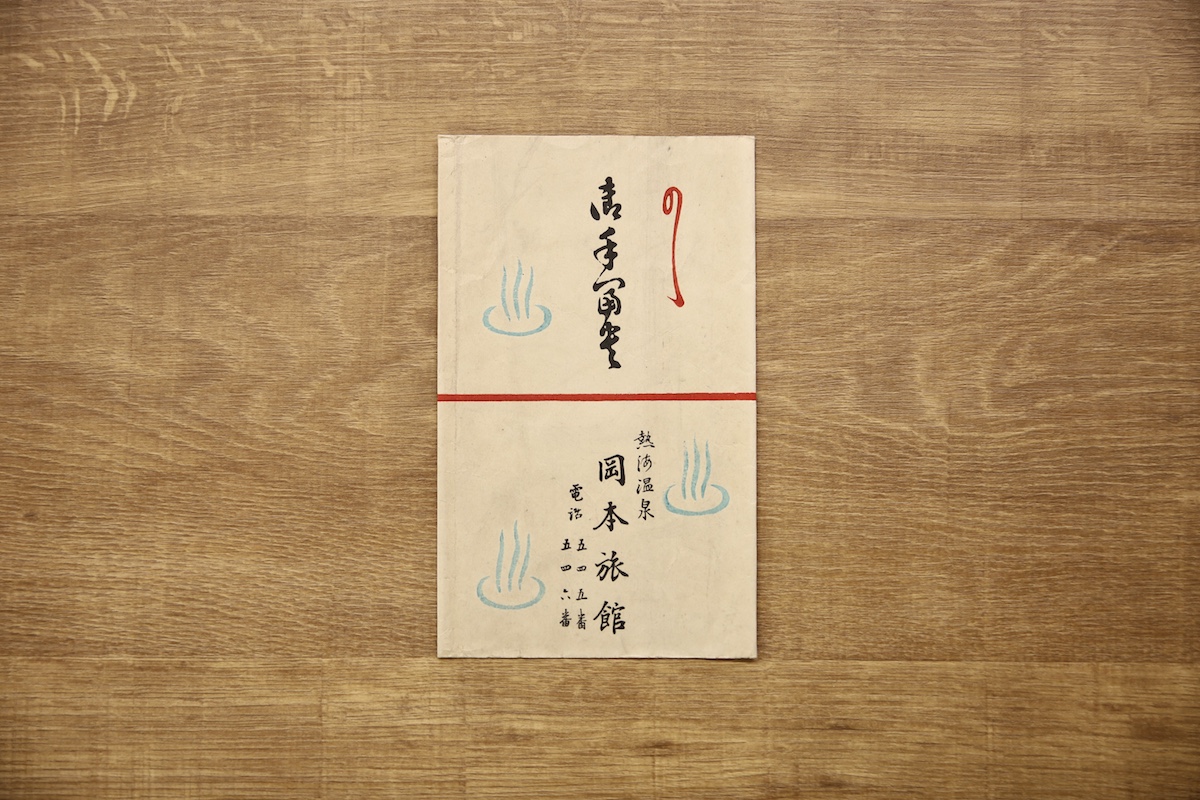 のし
御手富貴
熱海温泉
岡本旅館
電話
五四五番
五四六番